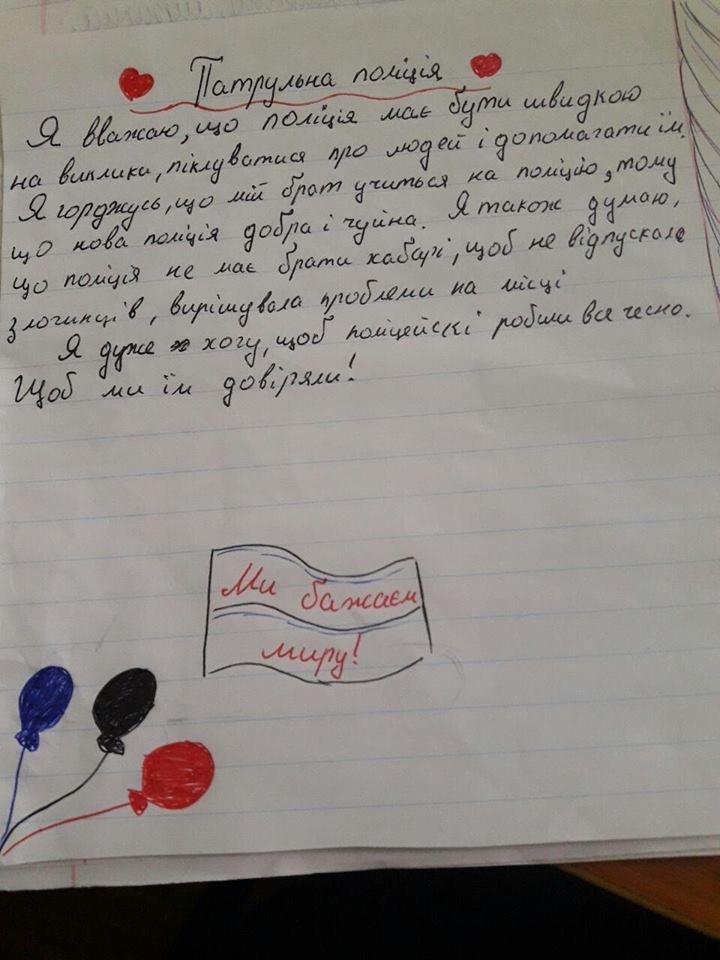 Патрульна поліція
Я вважаю, що поліція має бути швидкою
на виклики, піклуватися про людей і допомагати їм.
Я горджусь, що мій брат учиться на поліцію, тому
що нова поліція добра і чуйна. Я також думаю,
що поліція не має брати хабарі, щоб не відпускала
злочинців, вирішувала проблеми на місці
Я дуже хочу, щоб поліцейскі робили все чесно.
Щоб ми їм довіряли!
Ми бажаєм
миру!